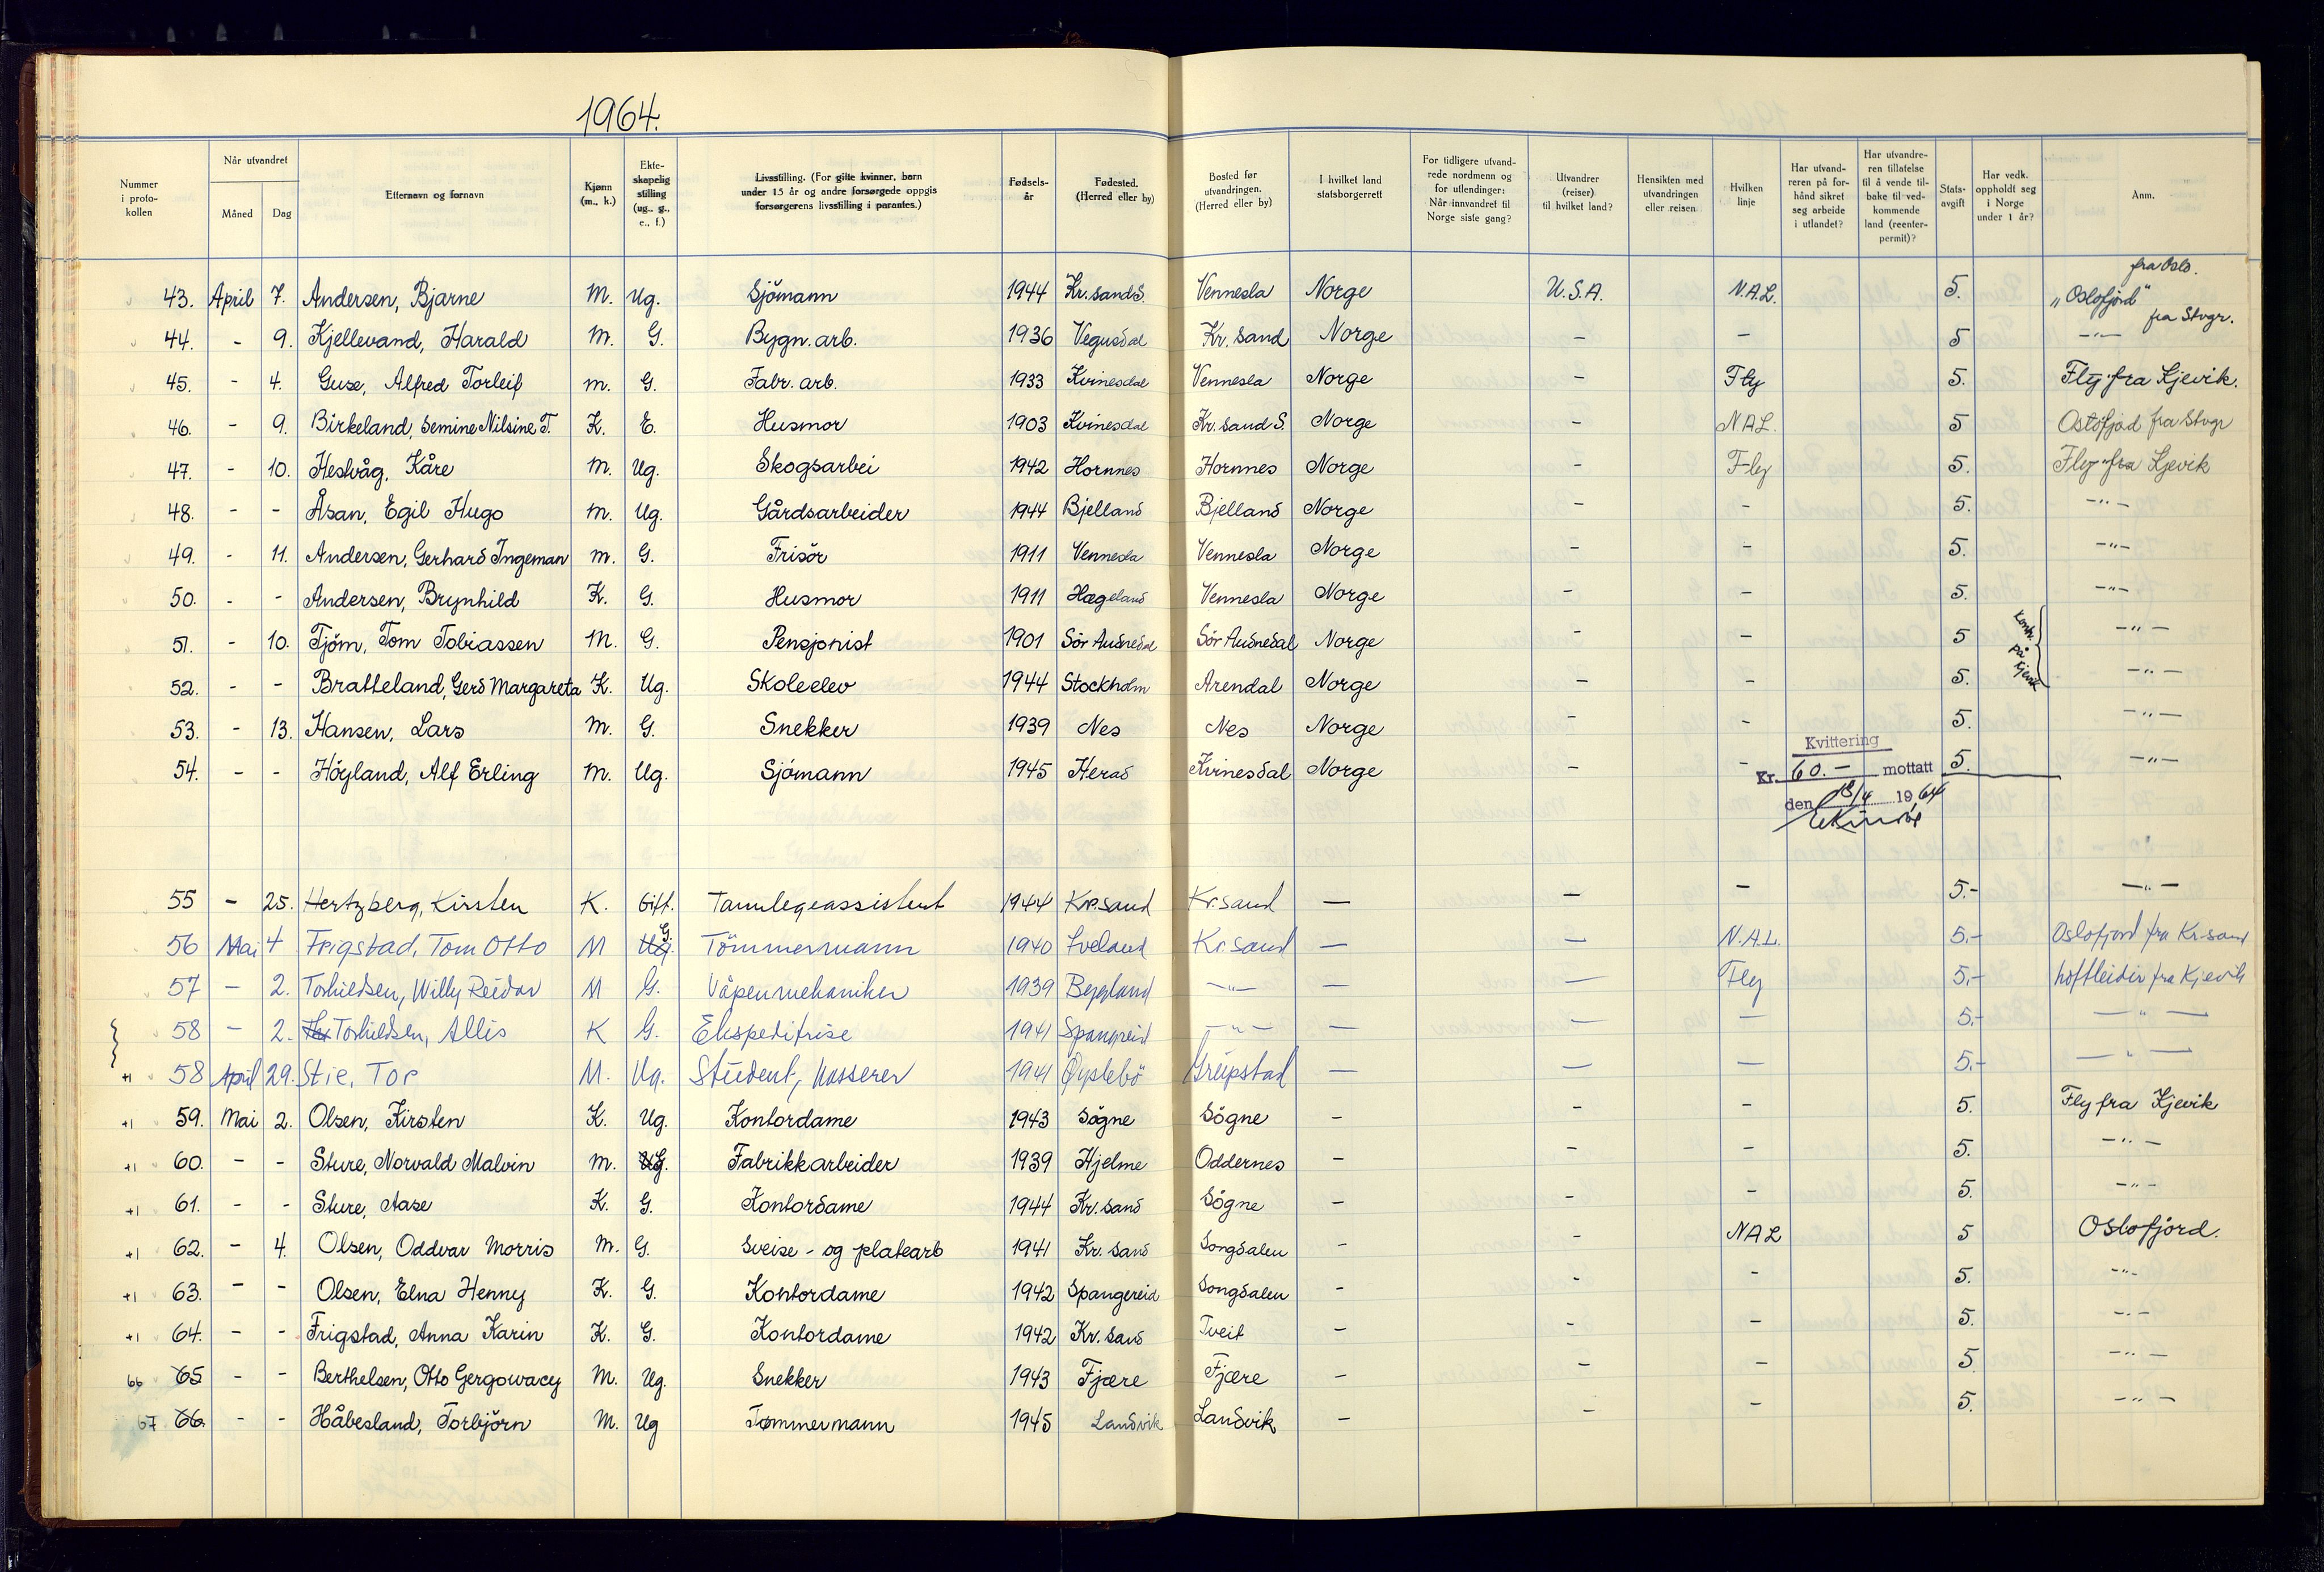 1964.
Nummer i proto- kollen
Når utvandret
Måned
Dag
Etternavn og fornavn
Kjønn (m., k.)
Ekte- skapelig stilling (ug., g., e., f.)
Livsstilling. (For gifte kvinner, barn under 15 år og andre forsørgede oppgis forsørgerens livsstilling i parantes.)
Fødsels- år
Fødested. (Herred eller by)
Bosted før utvandringen. (Herred eller by)
I hvilket land statsborgerrett
For tidligere utvand- rede nordmenn og for utlendinger: Når innvandret til Norge siste gang?
Utvandrer (reiser) til hvilket land?
Hensikten med utvandringen eller reisen
Hvilken linje
Har utvand- reren på for- hånd sikret seg arbeide i utlandet?
Har utvandre- ren tillatelse til å vende til- bake til ved- kommende land (reenter- permit)?
Stats- avgift
Har vedk. oppholdt seg i Norge under 1 år?
Anm.
43. April 7. Andersen, Bjarne M. Ug. Sjömann 1944 Kr.sand S. Vennesla Norge U.S.A. N.A.L. 5. „Oslofjord" fra Oslo.
44. - 9. Kjellevand, Harald M. G. Bygn. arb. 1936 Vegusdal Kr. sand Norge - - 5 -"- fra Stvgr.
45. - 4. Guse, Alfred Torleif M. G. Fabr. arb. 1933 Kvinesdal Vennesla Norge - Fly 5. Fly fra Kjevik.
46. - 9. Birkeland, Semine Nilsine T. K. E. Husmor 1903 Kvinesdal Kr. sand S. Norge - NAL. 5 Oslofjord fra Stvgr
47. - 10. Hestvåg, Kåre M. Ug. Skogsarbei 1942 Hornnes Hornnes Norge - Fly 5. Fly fra Kjevik
48. - - Åsan, Egil Hugo M. Ug. Gårdsarbeider 1944 Bjelland Bjelland Norge - - 5. -"-
49. - 11. Andersen, Gerhard Ingeman M. G. Frisör 1911 Vennesla Vennesla Norge - - 5. -"-
50. - - Andersen, Brynhild K. G. Husmor 1911 Hægeland Vennesla Norge - - 5. -"-
51. - 10. Tjöm, Tom Tobiassen M. G. Pensjonist 1901 Sör Audnedal Sör Audnedal Norge - - 5 -"-
på Kjevik
52. - - Bratteland, Gerd Margareta K. Ug. Skoleelev 1944 Stockholm Arendal Norge - - 5. -"-
53. - 13. Hansen, Lars M. G. Snekker 1939 Nes Nes Norge - - 5. -"-
54. - - Höyland, Alf Erling M. Ug. Sjömann 1945 Herad Kvinesdal Norge - - 5. -"-
Kvittering
Kr. 60.- mottatt
den 13/4 1964
55 - 25. Hertzberg, Kirsten K. Gift. Tannlegeassistent 1944 Kr.sand Kr.sand - - - 5.- -"-
56 Mai 4 Frigstad, Tom Otto M G. Tömmermann 1940 Iveland Kr.sand - - N.A.L. 5.- Oslofjord fra Kr-sand
57 - 2. Torkildsen, Willy Reidar M G. Våpenmekaniker 1939 Bygland -"- - - Fly 5.- loftleidir fra Kjevik
58 - 2. Torkildsen, Allis K G. Ekspeditrise 1941 Spangreid -"- - - - 5.- -"-
+1 58 April 29. Stie, Tor M. Ug. Student, Kasserer 1941 Öyslebö Greipstad - - - 5.- -"-
+1 59. Mai 2. Olsen, Kirsten K. Ug. Kontordame 1943 Sögne Sögne - - - 5. Fly fra Kjevik
+1 60. - - Sture, Norvald Malvin M. G. Fabrikkarbeider 1939 Hjelme Oddernes - - - 5. -"-
+1 61. - - Sture, Aase K. G. Kontordame 1944 Kr. sand Sögne - - - 5. -"-
+1 62. - 4. Olsen, Oddvar Morris M. G. Sveise - og platearb 1941 Kr. sand Songdalen - - NAL 5 Oslofjord.
+1 63. - - Olsen, Elna Henny K. G. Kontordame 1942 Spangereid Songdalen - - - 5. -"-
+1 64. - - Frigstad, Anna Karin K. G. Kontordame 1942 Kr. sand Tveit - - - 5. -"-
66 65 - - Berthelsen, Otto Gergowacy M. Ug. Snekker 1943 Fjære Fjære - - - 5. -"-
67 66. - - Håbesland, Torbjörn M. Ug Tømmermann 1945 Landvik Landvik - - - 5. -"-